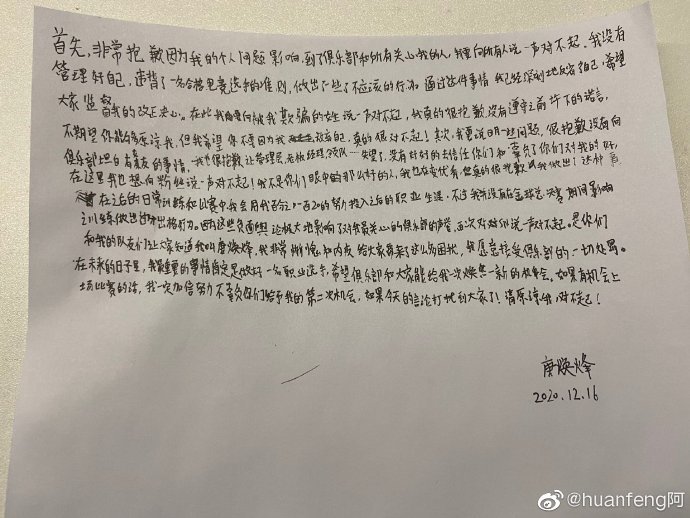 首先,非常抱歉因为我的个人问题影响到了俱乐部和所有关心我的人,我要向所有人说一声对不起。我没有
管理好自己,违背了一名合格竞赛选手的准则,做出了一些不应该的行为。通过这件事情我已经深刻地反省了自己,希望
大家监督 自我的改正决心。在此我想向被我欺骗的女生说一声对不起,我真的很抱歉没有遵守之前许下的诺言,
不期望你能够原谅我,但我希望你不要因为我 真的很对不起!其次,我要说明一些问题,很抱歉没有向
俱乐部坦白有女友的事情, 也很抱歉让管理层,老板经理领队……失望了,没有好好的去信任你们和辜负你们对我的好,
在这里我也想向粉丝说一声对不起!我不是你们眼中的那么好的人,我也没有优秀, 真的很抱歉 我做出了这种事
在之后的日常训练和比赛中我会用我百分之一百20的努力投入之后的职业生涯。不过我并没有在全球总决赛期间影响
之训练做出 出格行为。因为这些负面舆论极大地影响了对我最关心的俱乐部的声誉,再次对对你们说一声对不起。是你们
和我的队友们让大家知道我叫唐焕烽,我非常惭愧和内疚给大家带来了这么多困扰,我愿意接受俱乐部的一切处罚。
在未来的日子里,我最重要的事情肯定是做好一名职业选手,希望俱乐部和大家能给我一次焕然一新的机会。如果有机会上
场比赛的话,我一定加倍努力不辜负你们给予我的第二次机会,如果今天的言论打扰到大家了!请原谅我,对不起!
唐焕烽
2020.12.16
@huanfeng阿